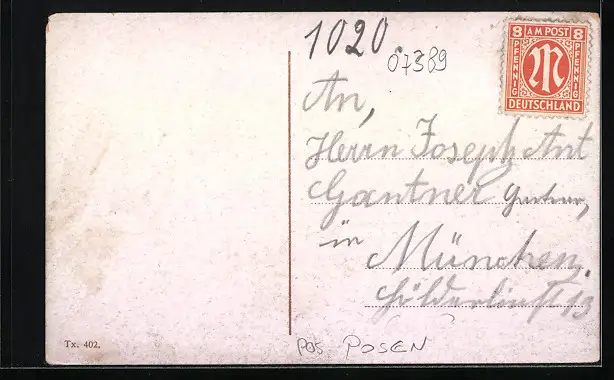 1020
07389
8 AM POST 8
PFENNIG
PFENNIG
DEUTSCHLAND
An,
Herrn Joseph Ant
Gantner
in
München.
13
Tx. 402.
POS POSEN